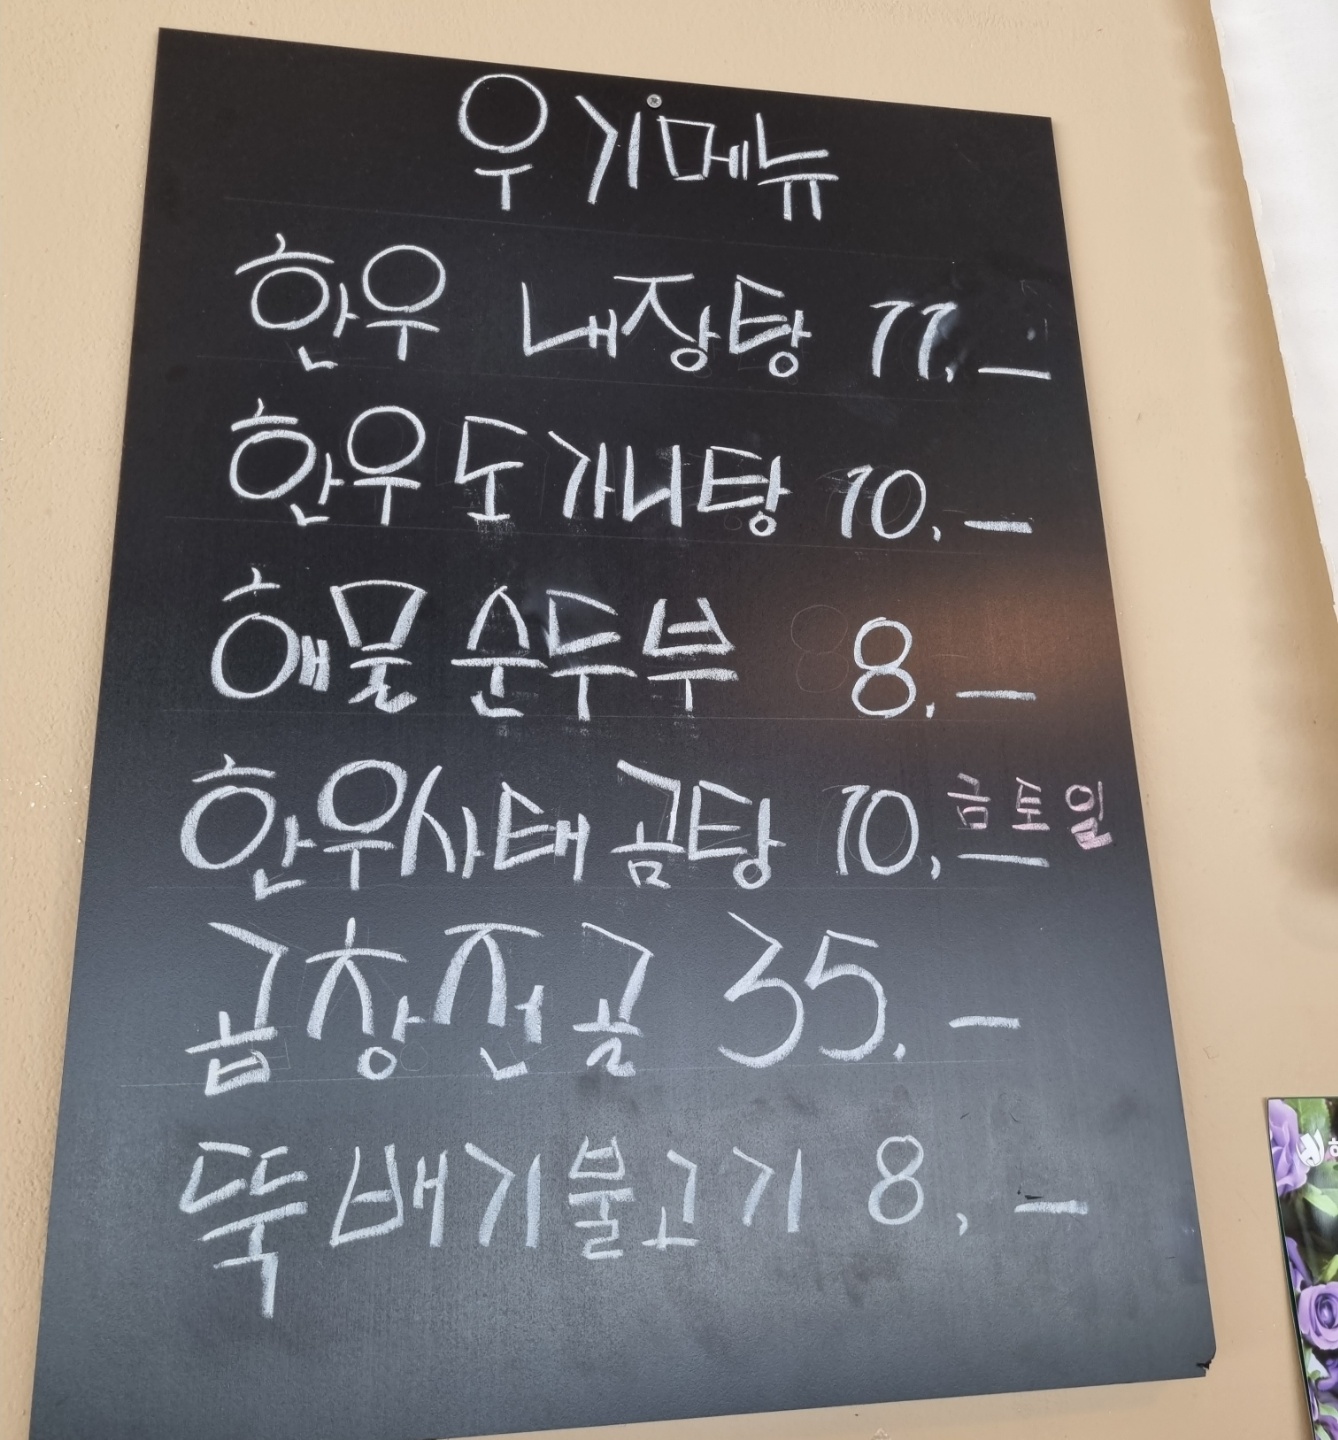 우기메뉴
한우 내장탕 11,—
한우도가니탕 10,—
해물순두부 8,—
한우사태곰탕 10,— 금토일
곱창전골 35,—
뚝배기불고기 8,—